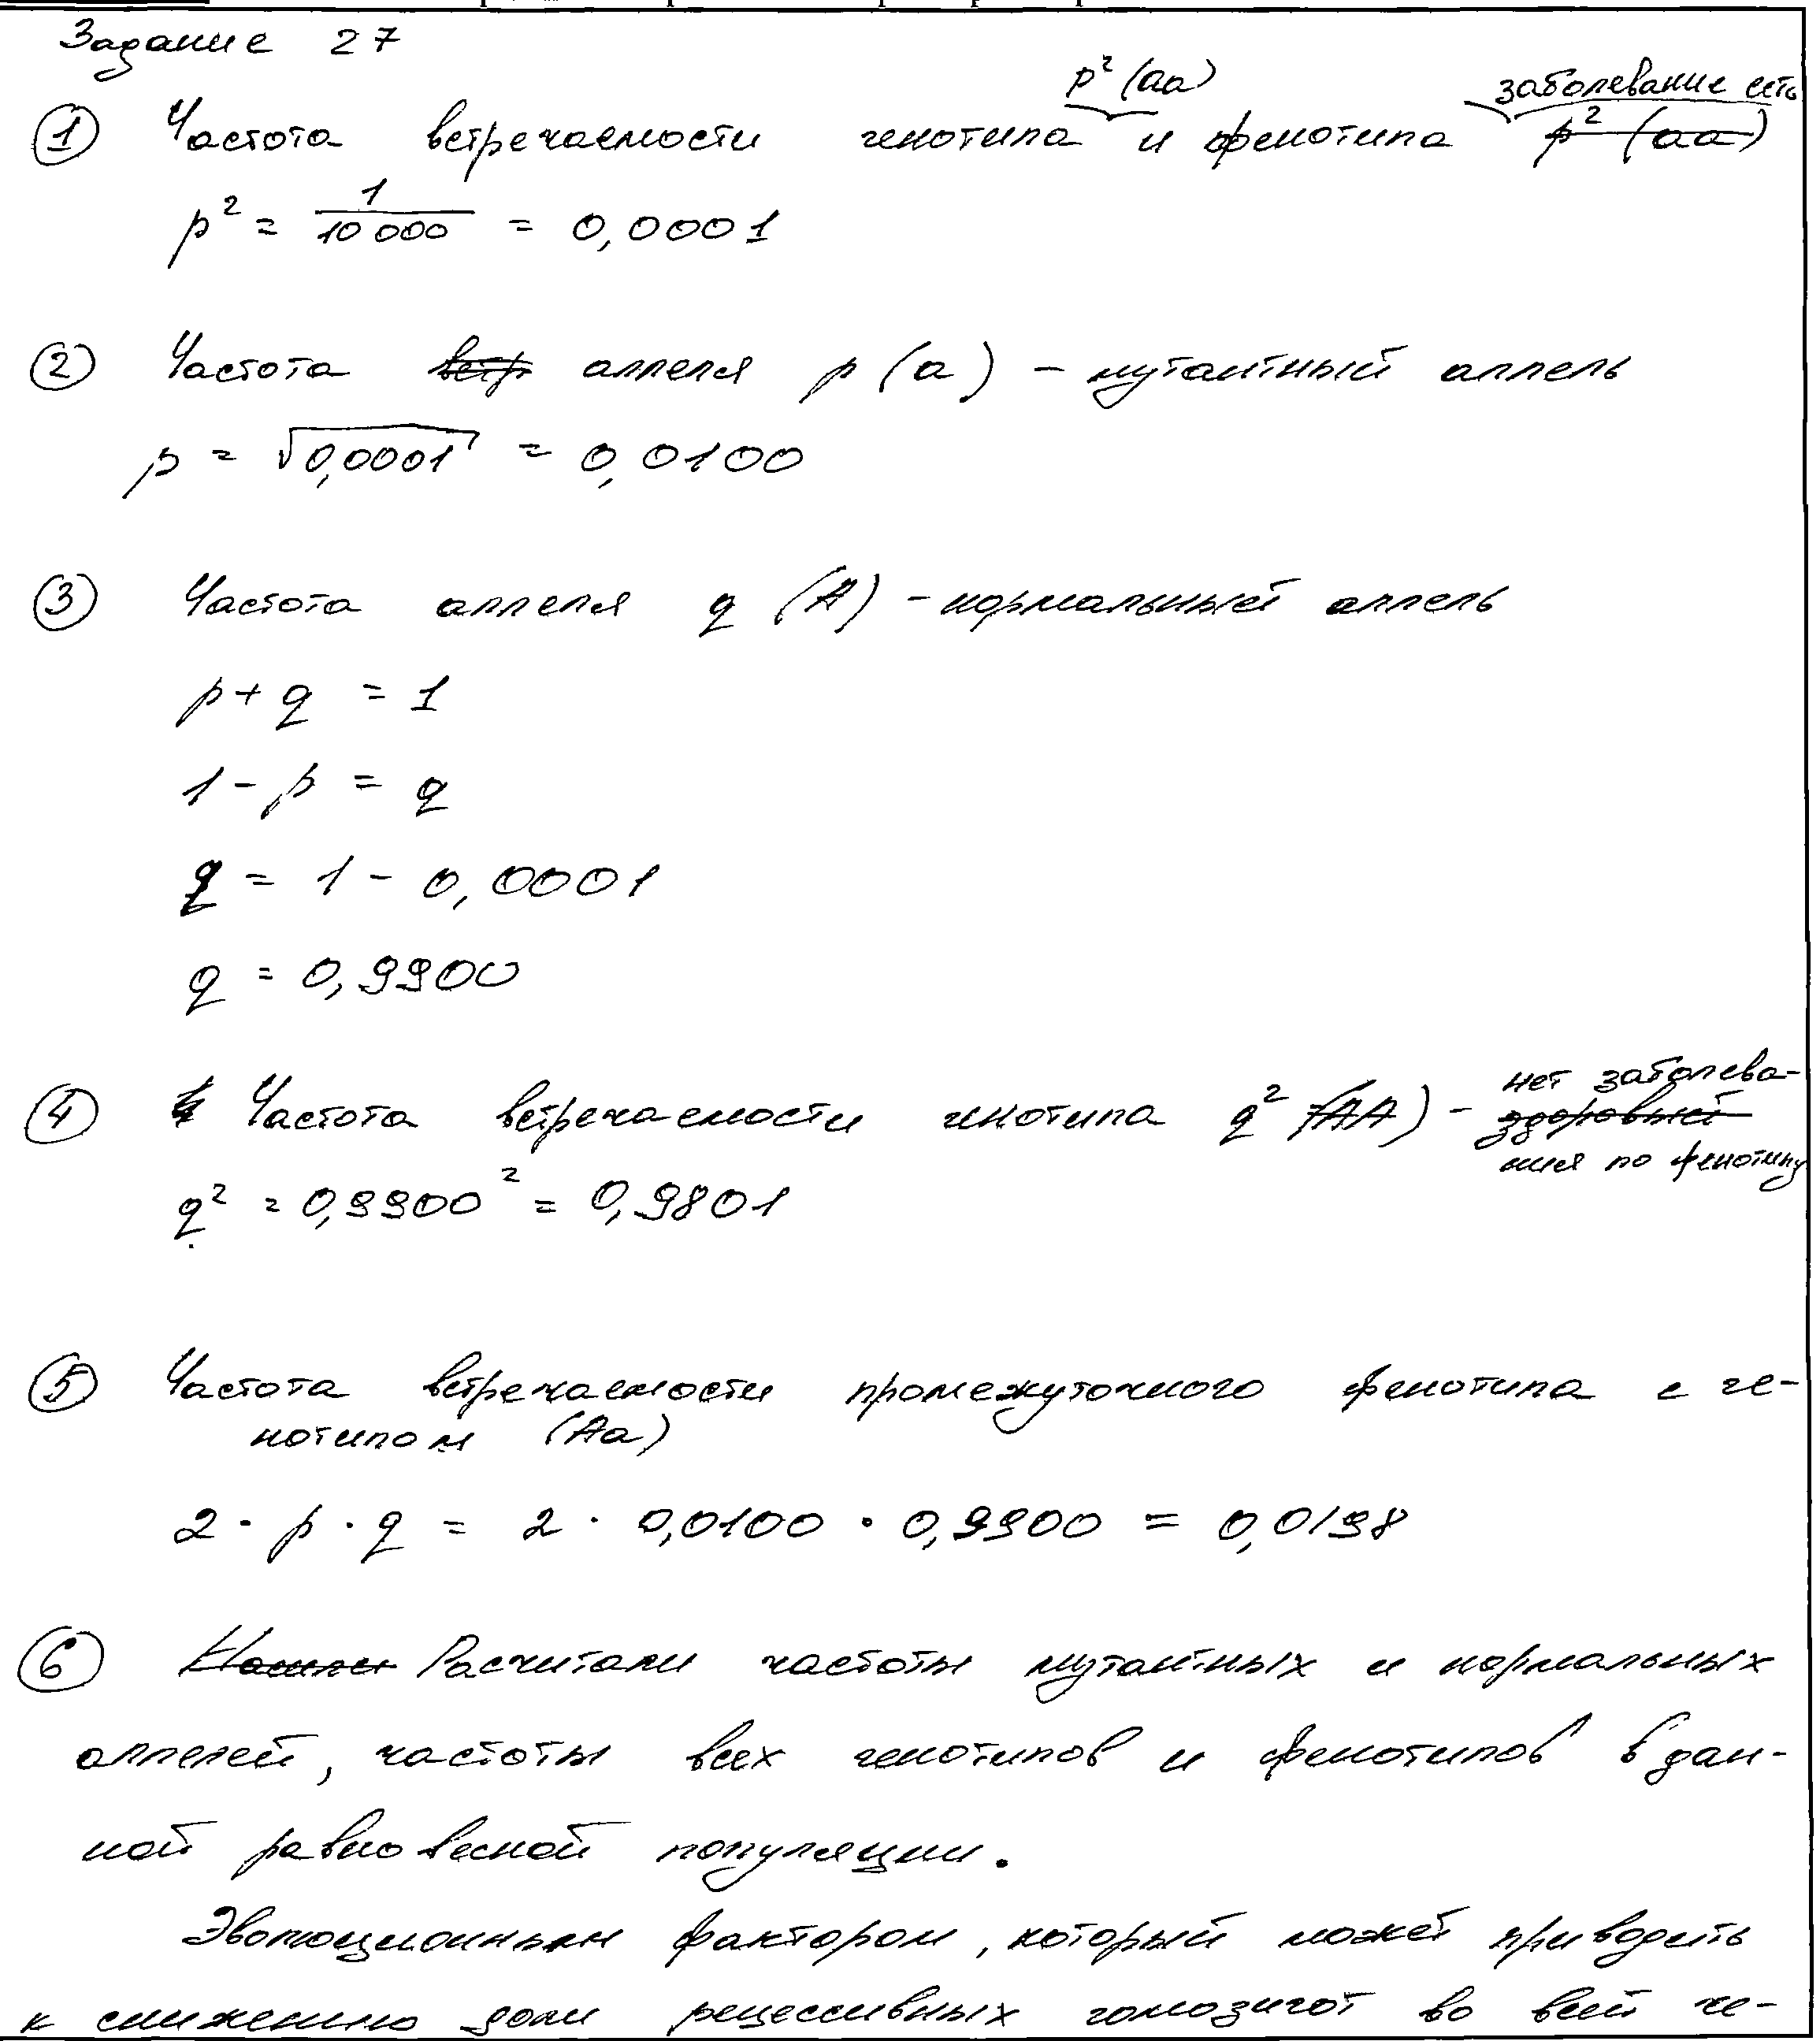 Задание 27
p² (aa) заболевание есть
① Частота встречаемости генотипа и фенотипа p² (aa)
p² = 1/10 000 = 0,0001
② Частота встр аллеля p (a) – мутантный аллель
p = √0,0001 = 0,0100
③ Частота аллеля q (A) – нормальный аллель
p + q = 1
1 - p = q
q = 1 - 0,0001
q = 0,9900
нет заболева-
④ Частота встречаемости генотипа q² (AA) – здоровый
ния по фенотипу
q² = 0,9900² = 0,9801
⑤ Частота встречаемости промежуточного фенотипа с ге-
нотипом (Aa)
2 · p · q = 2 · 0,0100 · 0,9900 = 0,0198
⑥ Расчитали частоты мутантных и нормальных
аллелей, частоты всех генотипов и фенотипов в дан-
ной равновесной популяции.
Эволюционным фактором, который может приводить
к снижению доли рецессивных гомозигот во всей че-